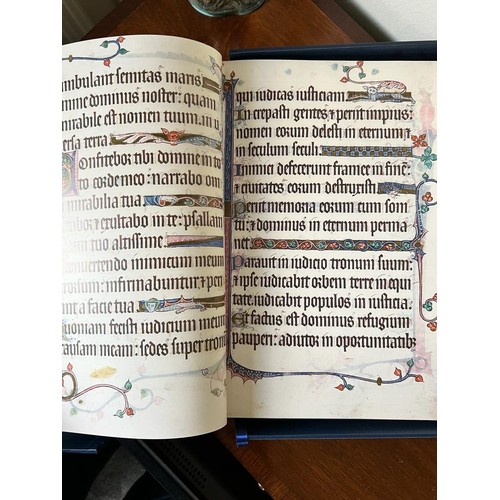 ambulant semitas maris
mine dominus noster: quam
mirabile est nomen tuum in u
ersa terra
Confitebor tibi domine in to
to corde meo: narrabo om
mirabilia tua
labor & exultabo in te: psallam
tuo altissime
convertendo inimicum meum
rsum: infirmabuntur, & peri
ent a facie tua
Quoniam fecisti iudicium meum
causam meam: sedes super tron
qui iudicas iusticiam
Increpasti gentes, & perit impius:
nomen eorum delesti in eternum &
in seculum seculi
Inimici defecerunt framee in fine:
& civitates eorum destruxisti
Periit memoria eorum cum soni
tu: & dominus in eternum perma
net
Paravit in iudicio tronum suum:
& ipse iudicabit orbem terre in equi
tate, iudicabit populos in iusticia:
Et factus est dominus refugium
pauperi: adiutor in oportunitatib